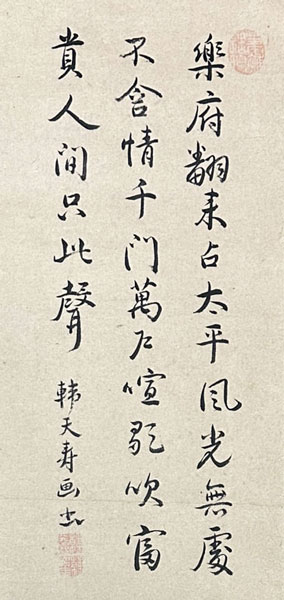 樂府翻来占太平風光無處
不含情千門萬户喧歌吹富
貴人間只此聲
韓天寿画